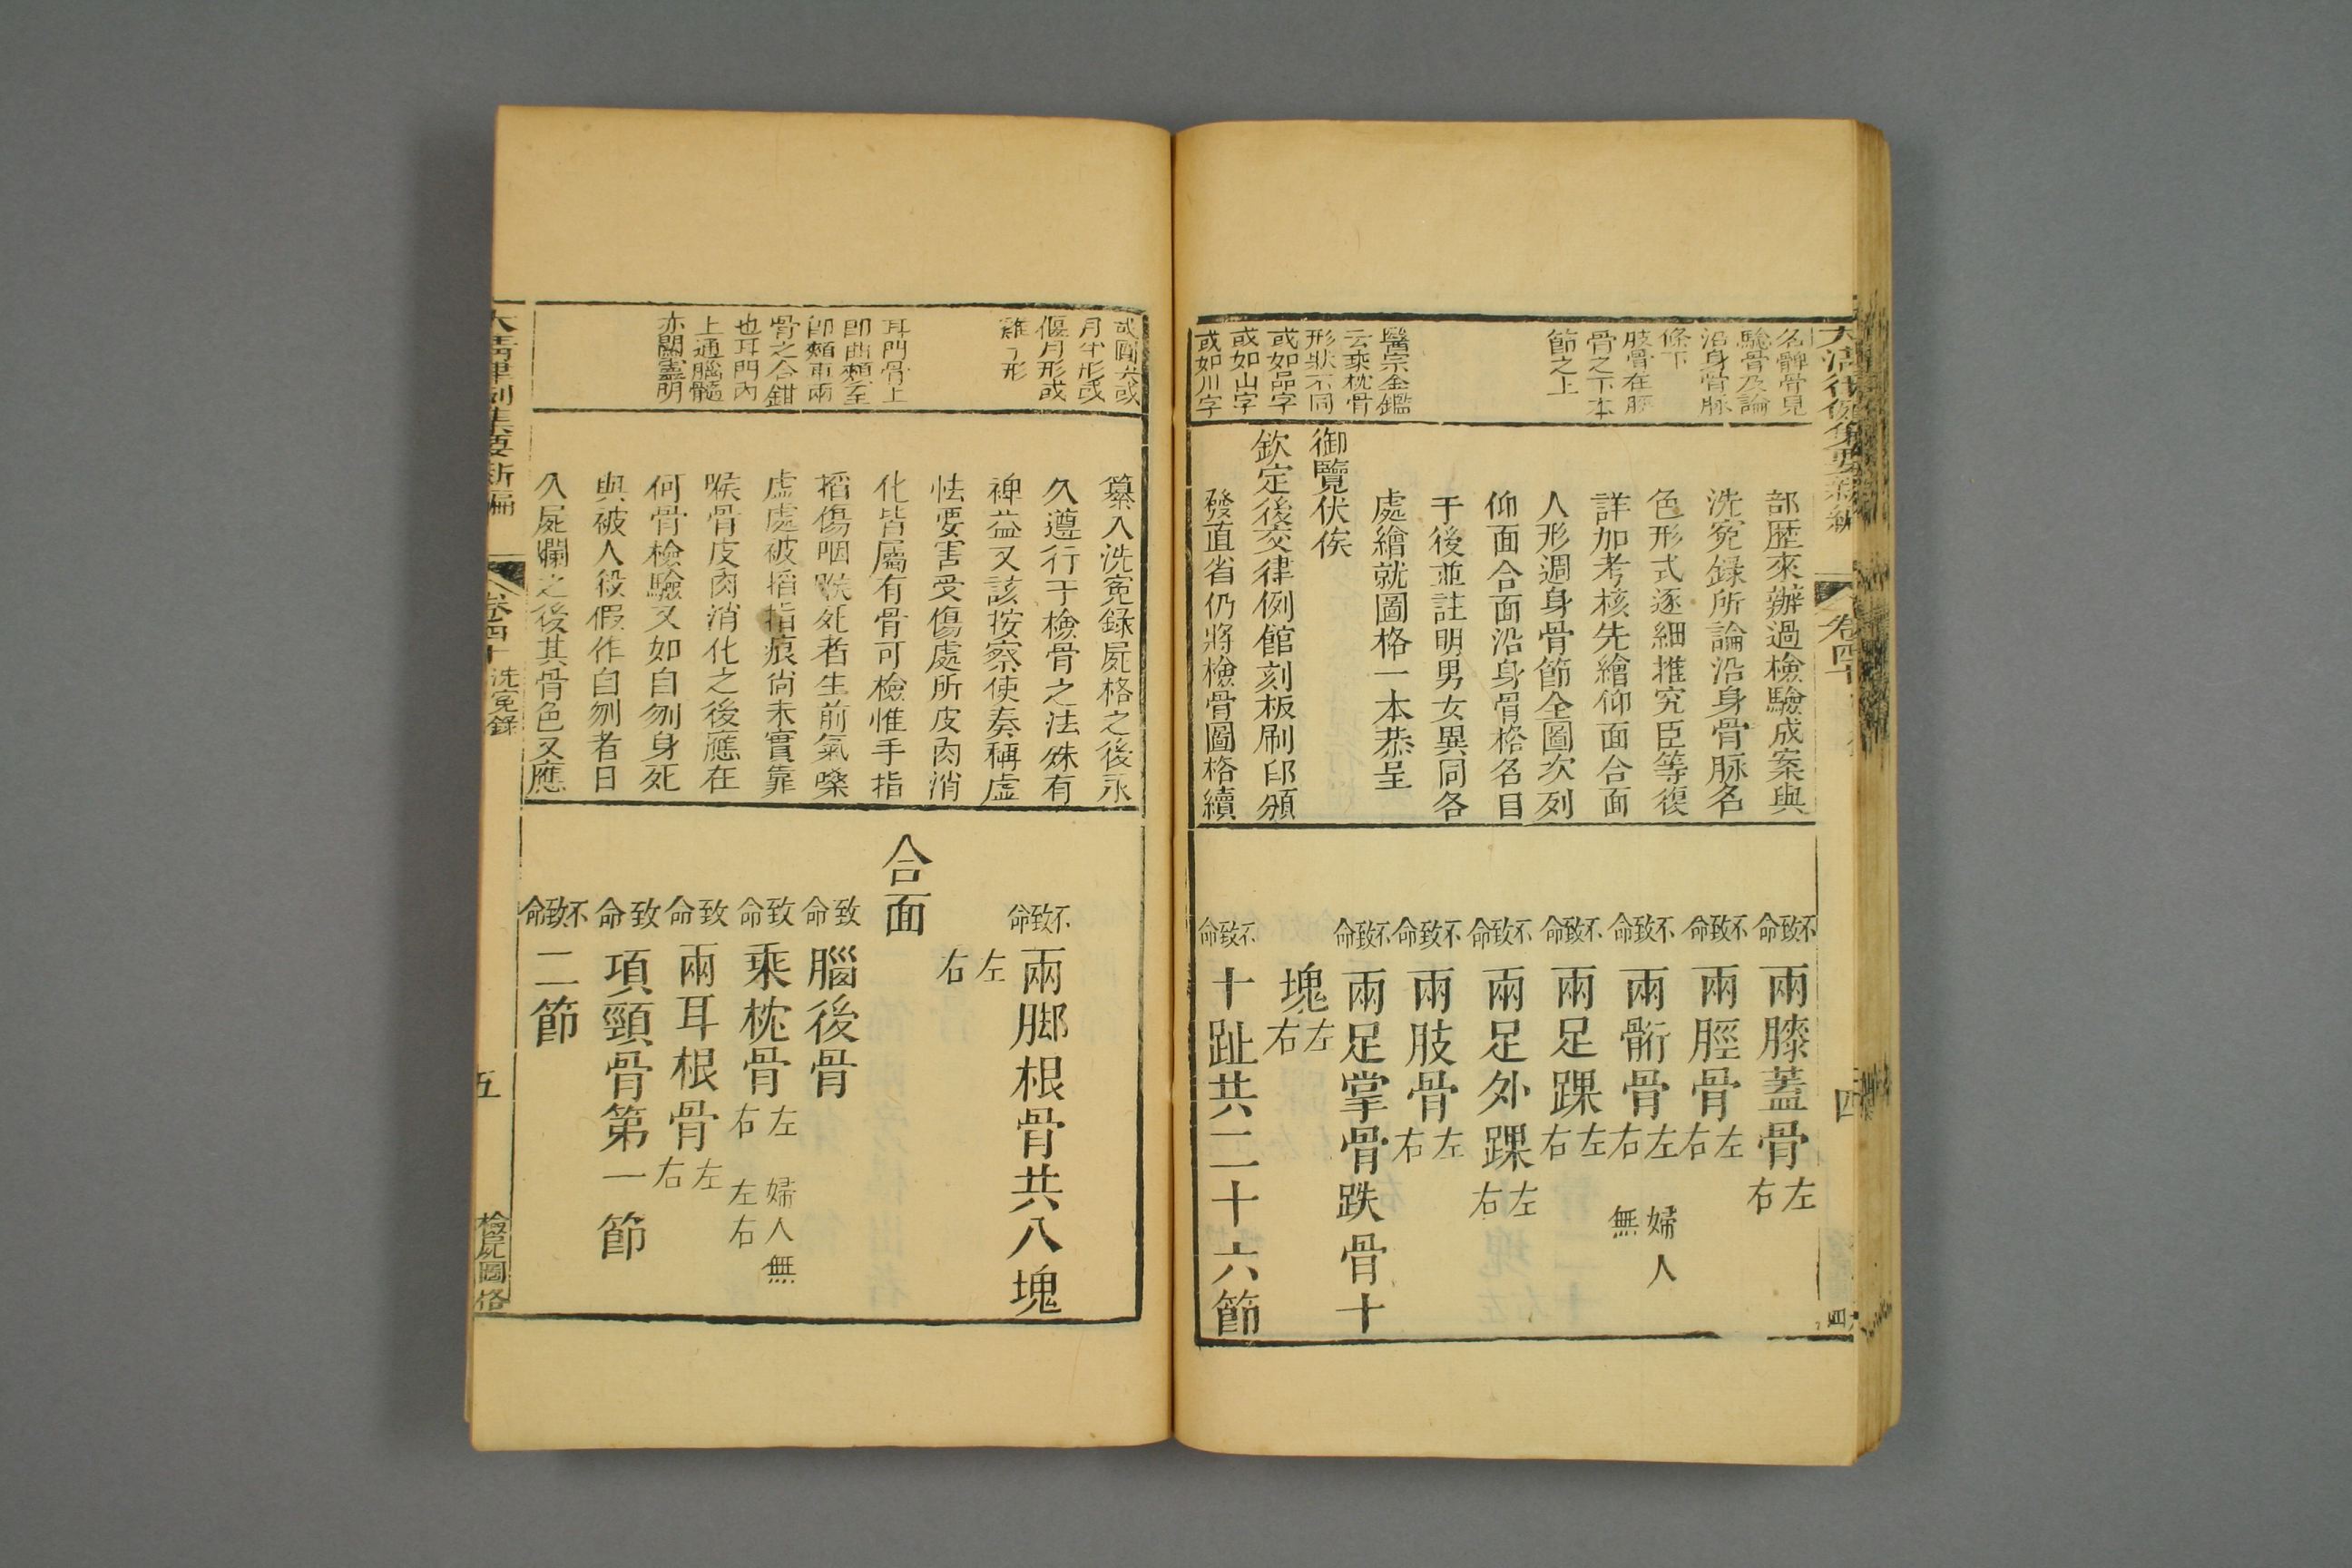 名髀骨見
驗骨及論
沿身骨脉
條下
肢骨在腰
骨之下本
節之上
醫宗金鑑
云乘枕骨
形狀不同
或如品字
或如山字
或如川字
部歷來辦過檢驗成案與
洗冤錄所論沿身骨脉名
色形式逐細推究臣等復
詳加考核先繪仰面合面
人形週身骨節全圖次列
仰面合面沿身骨格名目
于後並註明男女異同各
處繪就圖格一本恭呈
御覽伏俟
欽定後交律例館刻板刷印頒
發直省仍將檢骨圖格續
不致命 兩膝蓋骨 左右
不致命 兩脛骨 左右
不致命 兩䯒骨 左右 婦人無
不致命 兩足踝 左右
不致命 兩足外踝 左右
不致命 兩肢骨 左右
不致命 兩足掌骨跌骨十
塊 左右
不致命 十趾共二十六節
四
或圓尖或
月牙形或
偃月形或
雞子形
耳門骨上
即曲頰至
即頰車兩
骨之合鉗
也耳門內
上通腦髓
亦關靈明
纂入洗冤錄屍格之後永
久遵行于檢骨之法殊有
裨益又該按察使奏稱虛
怯要害受傷處所皮肉消
化皆屬有骨可檢惟手指
搯傷咽喉死者生前氣嗓
虛處被搯指痕尚未實靠
喉骨皮肉消化之後應在
何骨檢驗又如自刎身死
與被人殺假作自刎者日
久屍爛之後其骨色又應
不致命 兩脚根骨共八塊
左右
合面
致命 腦後骨
致命 乘枕骨 左右 婦人無左右
致命 兩耳根骨 左右
致命 項頸骨第一節
不致命 二節
大清律例集要新編 卷四十 洗冤錄 五 檢屍圖格